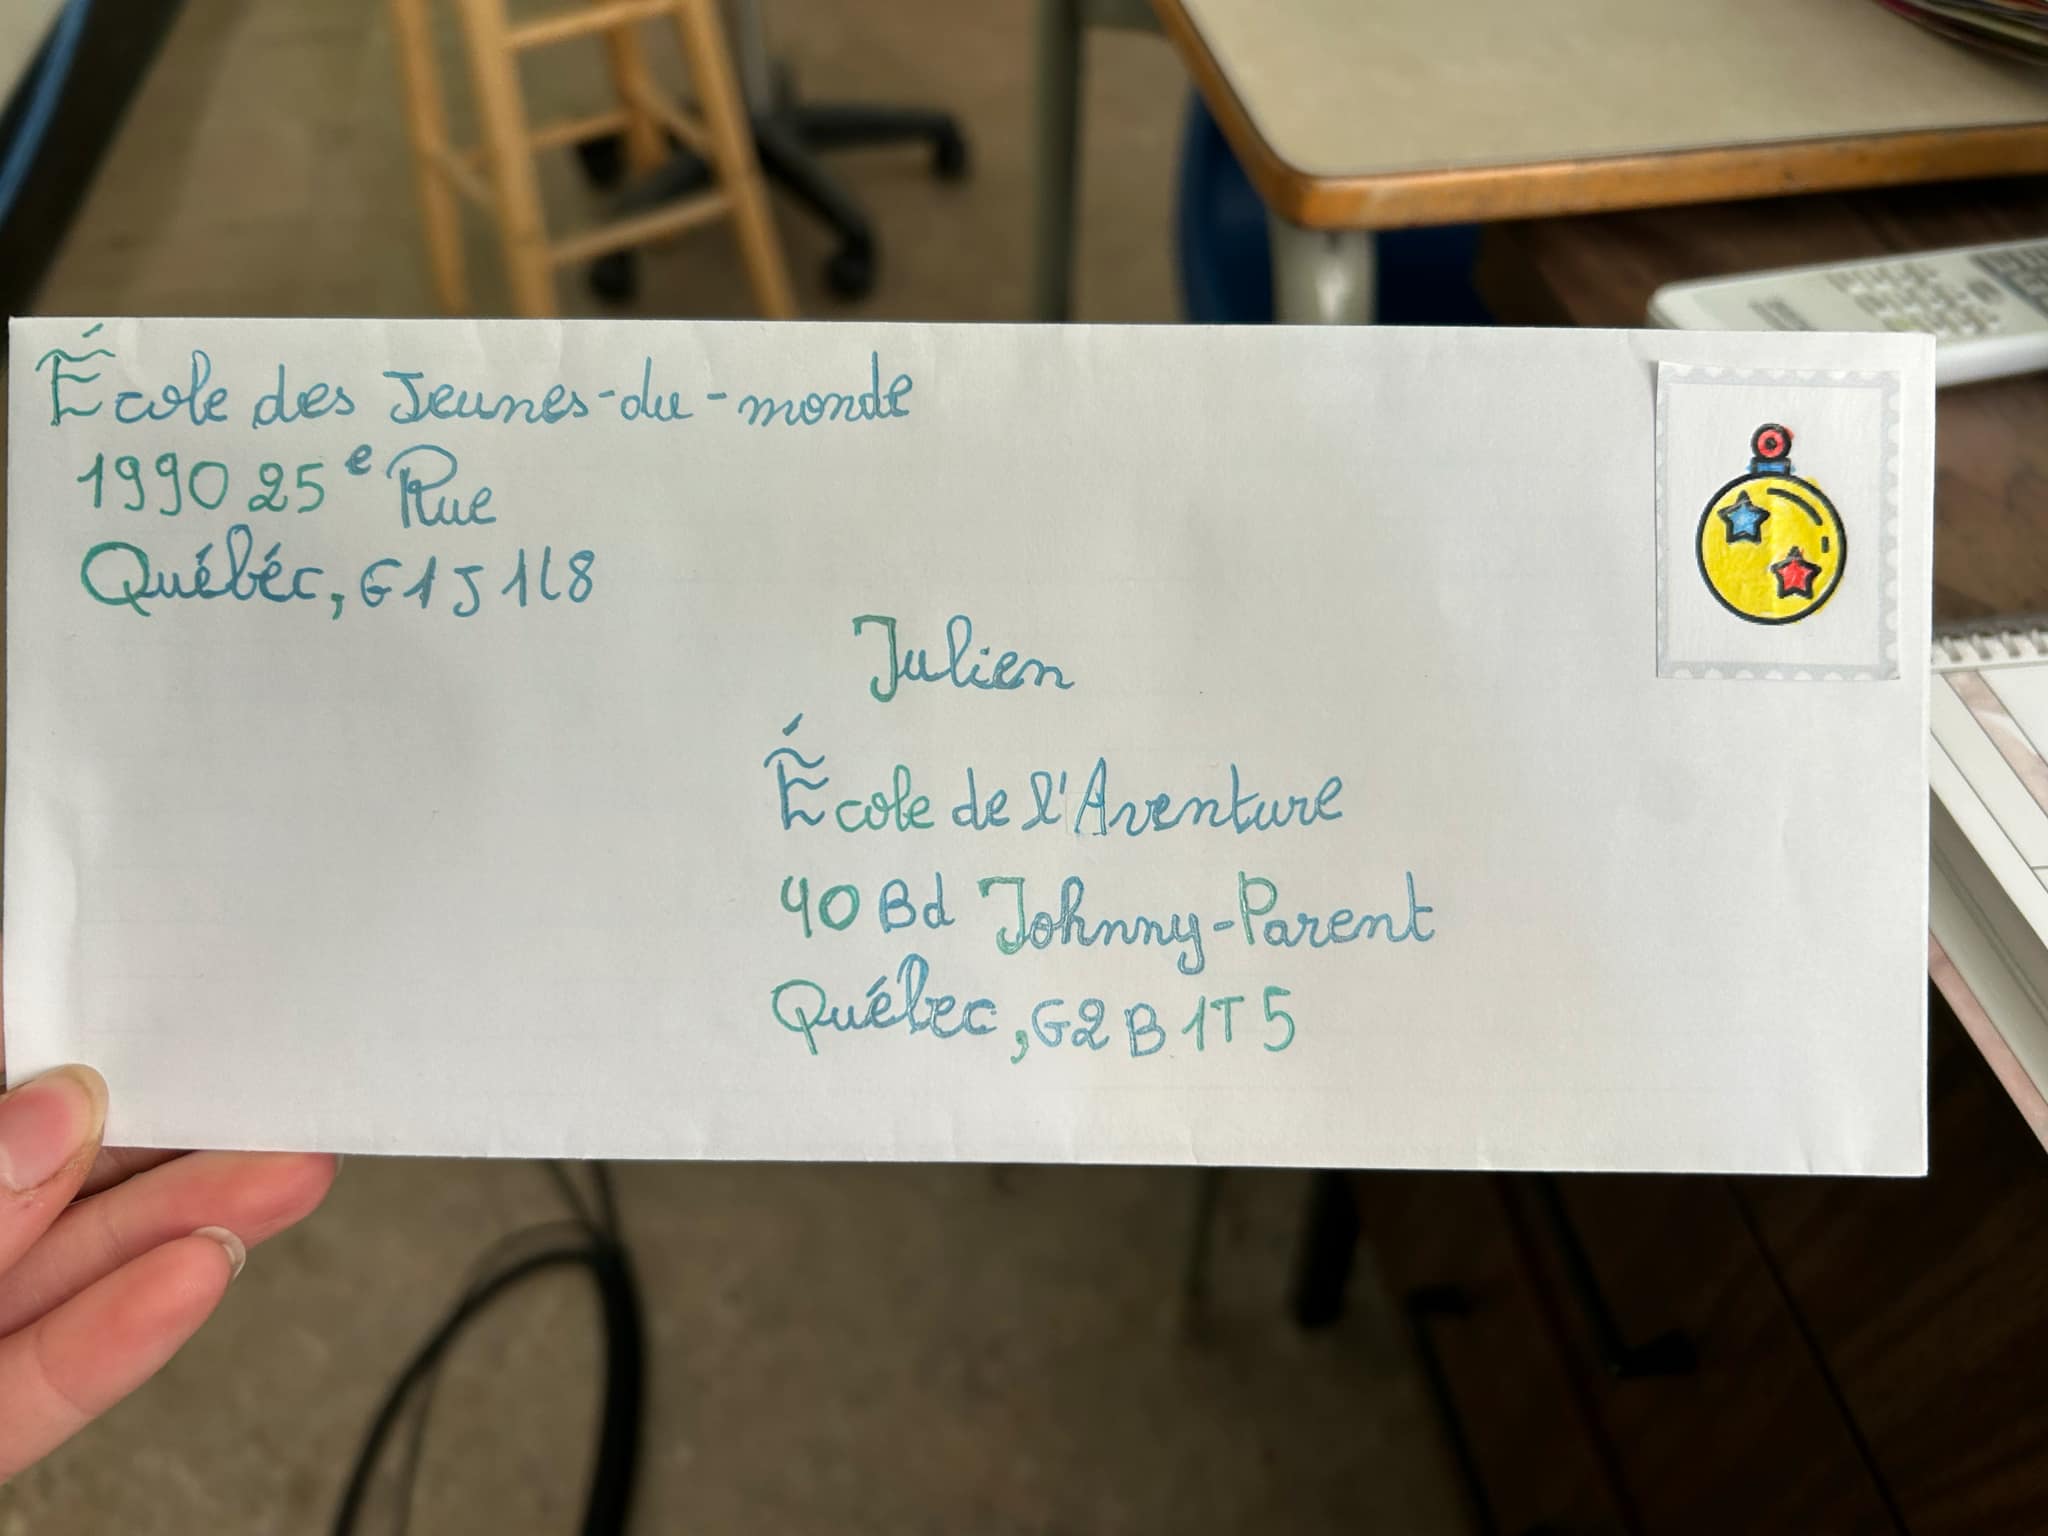 École des Jeunes-du-monde
1990 25e Rue
Québéc, G1J 1L8
Julien
École de l'Aventure
40 Bd Johnny-Parent
Québec, G2B 1T5